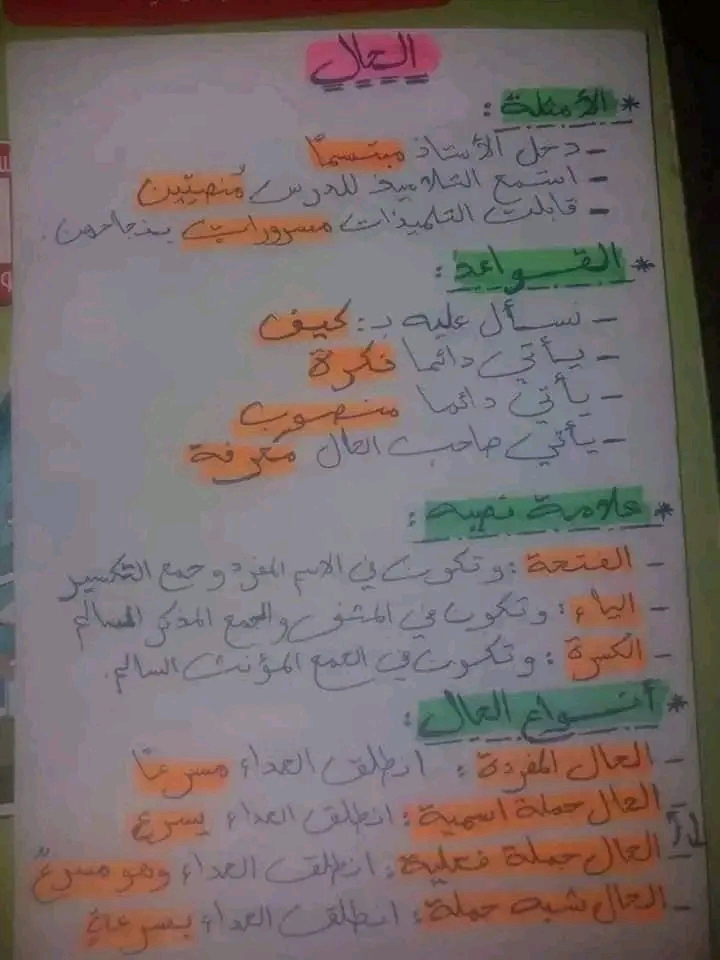 الحال
* الأمثلة :
- دخل الأستاذ مبتسمًا
- استمع التلاميذ للدرس مُنصتين
- قابلت التلميذات مسرورات بنجاحهن .
* القواعد :
- نسأل عليه بـ : كيف
- يأتي دائما نكرة
- يأتي دائما منصوب
- يأتي صاحب الحال معرفة
* علامة نصبه :
- الفتحة : وتكون في الاسم المفرد وجمع التكسير
- الياء : وتكون في المثنى والجمع المذكر السالم
- الكسرة : وتكون في الجمع المؤنث السالم .
* أنواع الحال :
- الحال المفردة : انطلق العداء مسرعًا
- الحال جملة اسمية : انطلق العداء يسرع
- الحال جملة فعلية : انطلق العداء وهو مسرعٌ
- الحال شبه جملة : انطلق العداء بسرعةٍ